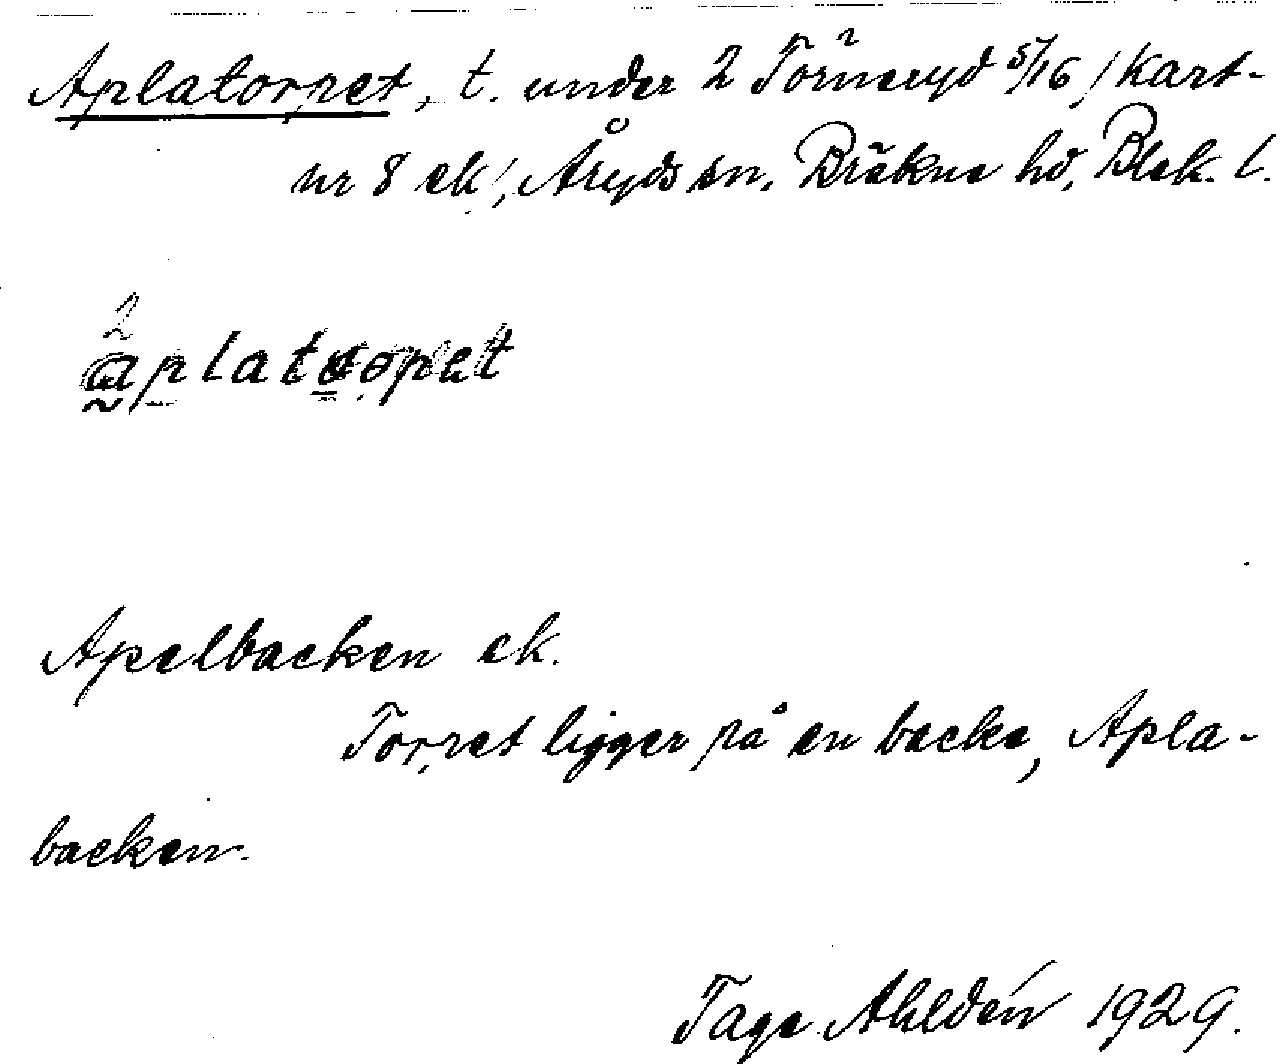 Aplatorpet, t. under 2 Törneryd 5/16 /Kart-
nr 8 ek/, Åryds sn, Bräkne hd, Blek. l.
2
aplatoopet
Apelbacken ek.
Torpet ligger på en backe, Apla-
backen.
Tage Ahldén 1929.